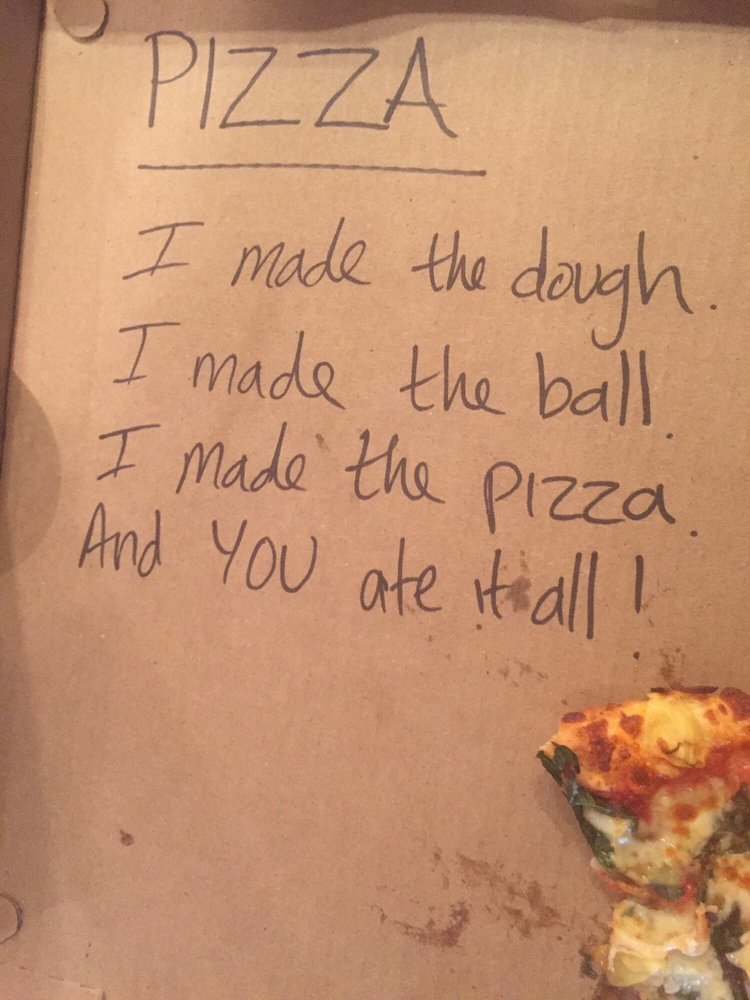 PIZZA
I made the dough.
I made the ball.
I made the pizza.
And YOU ate it all!